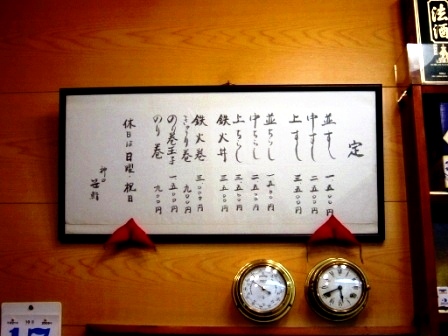 定
並すし 一五〇〇円
中すし 二五〇〇円
上すし 三五〇〇円
並ちらし 一五〇〇円
中ちらし 二五〇〇円
上ちらし 三五〇〇円
鉄火丼 三五〇〇円
鉄火巻 三〇〇〇円
きゅうり巻 九〇〇円
のり巻玉子 一五〇〇円
のり巻 九〇〇円
休日は日曜・祝日
神田
笹鮨
法酒
17